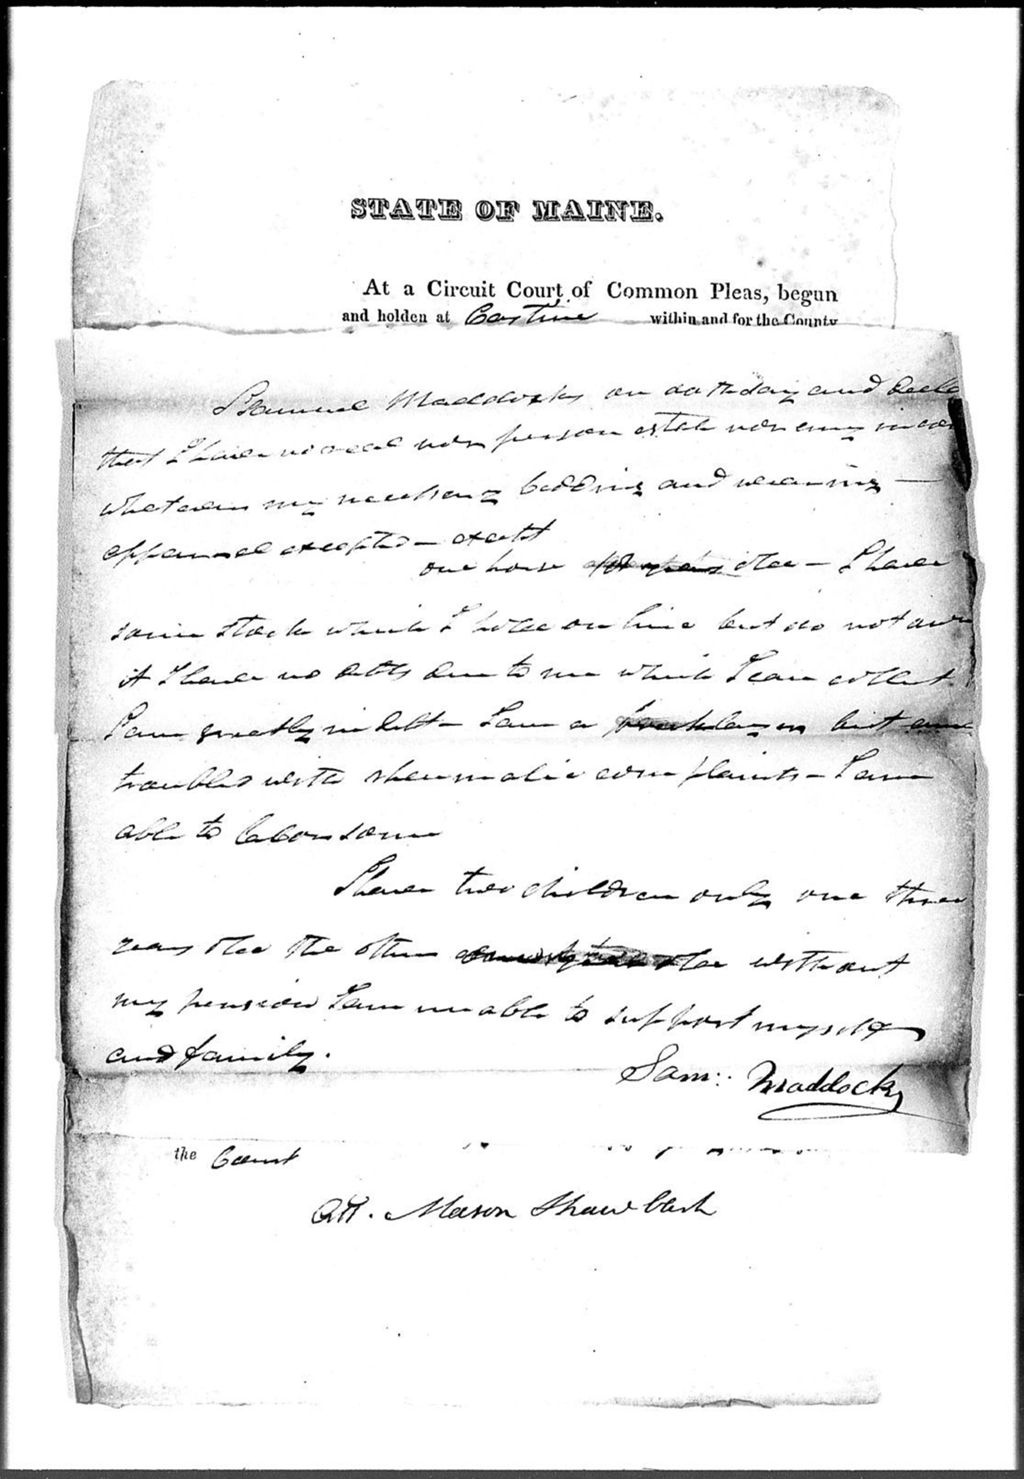 STATE OF MAINE.
At a Circuit Court of Common Pleas, begun
and holden at Castine within and for the County
I Samuel Maddocks on oath say and
that I have no real nor person estate nor any
whatever my necessary bedding and wearing —
apparrel excepted — except
one horse old — I have
some stock which I hold on hire but do not own
it I have no debts due to me which I can collect
I am greatly in debt — I am a but am
troubled with rheumatic complaints — I am
able to labour some
I have two children only one three
years old the other old without
my pension I am unable to support myself
and family.
Sam: Maddocks
the Court
Att. Mason Shaw Clerk